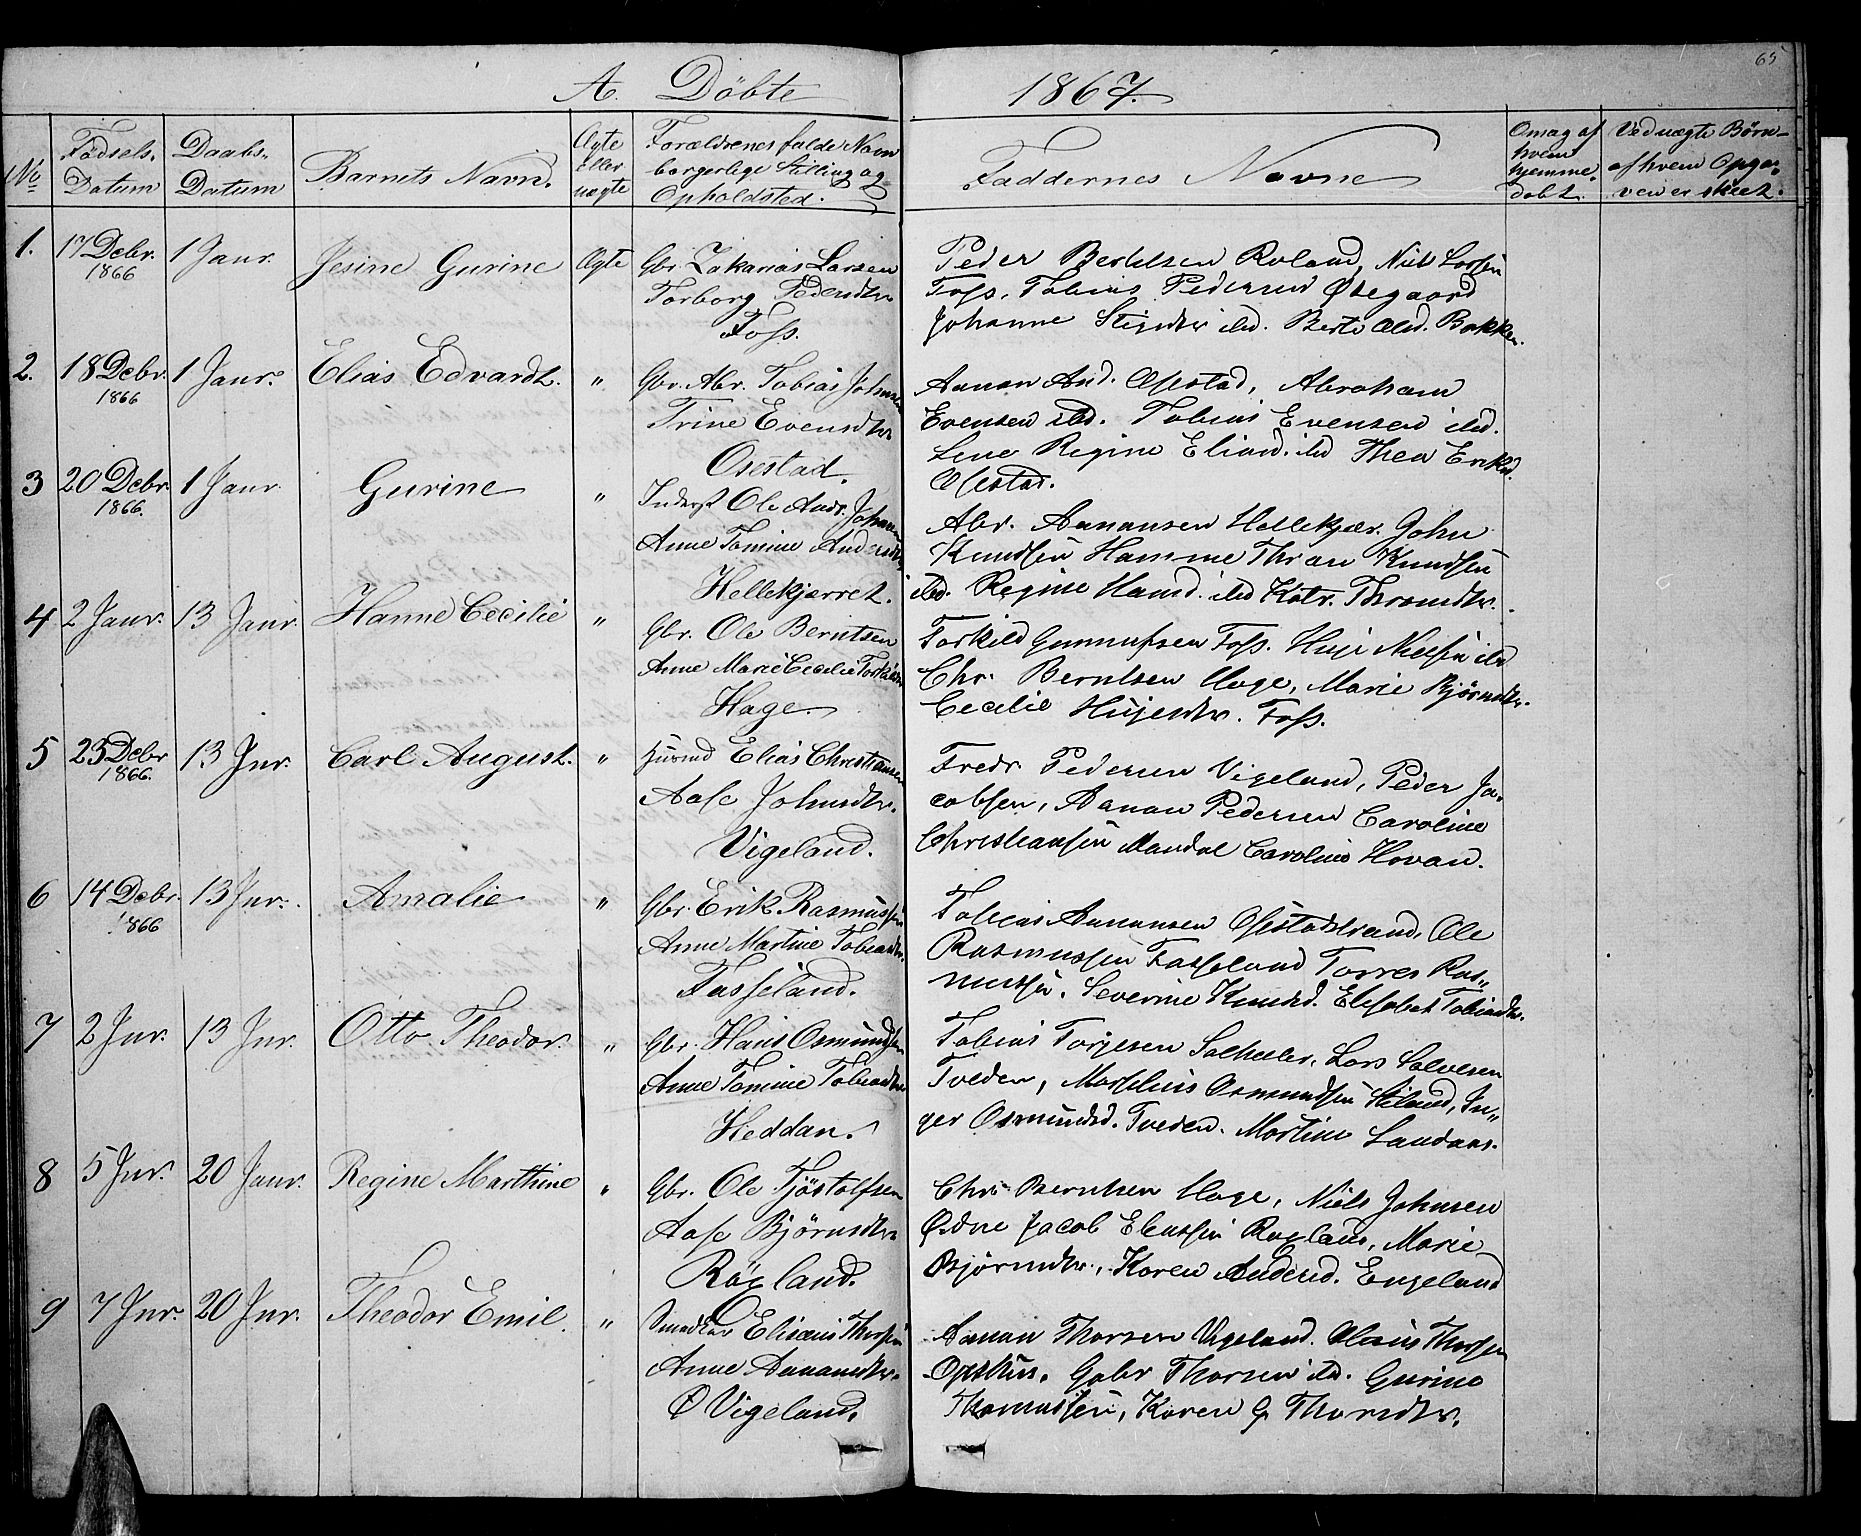 65
A. Döbte 1867.
No
Födsels-
Datum
Daabs-
Datum
Barnets Navn.
Ægte
eller
uægte
Forældrenes fulde Navn
borgerlige Stilling og
Opholdsted.
Faddernes Navne
Om og af
hvem
hjemme-
döbt.
Ved uægte Børn
af hvem Opga-
ven er skeet.
1. 17 Debr. 1866 1 Janr. Jesine Gurine Ægte
Gbr. Zakarias Larsen
Torborg Pedersdtr
Foss.
Peder Bertelsen Roland, Niels Larsen
Foss, Tobias Pedersen Øvegaard
Johanne ibd. Berte Bakken.
2. 18 Debr. 1866 1 Janr. Elias Edvardt. "
Gbr. Abr. Tobias Johnsen
Trine Evensdtr
Osestad.
Aanan And. Osestad, Abraham
Evensen ibd. Tobias Evensen ibd.
Lene Regine Eliasd. ibd Thea Eriksd.
Osestad.
3 20 Debr 1866. 1 Janr. Gurine "
Inderst Ole Andr. Johnsen
Anne Tomine Andersdtr
Hellekjærret.
Abr. Aanansen Hellekjær. John
Knudsen Hamme Thran Knudsen
ibd. Regine Hansd. ibd Katr. Thronsdtr.
4 2 Janr. 13 Janr. Hanne Cecilie "
Gbr. Ole Berntsen
Anne Marie Cecilie Torkildsdtr
Hage.
Torkild Gunnufsen Foss. Nielsen ibd
Chr. Berntsen Hage, Marie Bjørnsdtr.
Cecilie Foss.
5 23 Debr 1866. 13 Jnr. Carl August. "
Husmd Elias Christiansen
Aase Johnsdtr.
Vigeland.
Fredr. Pedersen Vigeland, Peder Ja-
cobsen, Aanan Pedersen Caroline
Christiansen Mandal Caroline Hovan.
6 14 Debr. 1866 13 Jnr. Amalie "
Gbr. Erik Rasmussen
Anne Martine Tobiasdtr.
Fasseland.
Tobias Aanansen Osestadstrand, Ole
Rasmussen Fasseland Torres Ras-
mussen. Severine Knudsd. Elisabet Tobiasdtr.
7 2 Jnr. 13 Jnr. Otto Theodor. "
Gbr. Hans Osmundsen
Anne Tomine Tobiasdtr
Heddan.
Tobias Torjesen Lars Salvesen
Tveden, Osmundsen In-
ger Osmundsd. Tveden. Martine Landaas.
8 5 Jnr. 20 Janr. Regine Marthine "
Gbr. Ole Tjöstolfsen
Aase Björnsdtr
Röyland.
Chr. Berntsen Hage, Niels Johnsen
Jacob Røyland, Marie
Bjørnsdtr., Karen Andersd. Engeland
9 7 Jnr. 20 Jnr. Theodor Emil. "
Elisæus Thorsen
Anne Aanansdtr.
Ø Vigeland.
Aanan Thorsen Vigeland. Thorsen
Gabr Thorsen ibd. Gurine
Karen G. Thorsdtr.